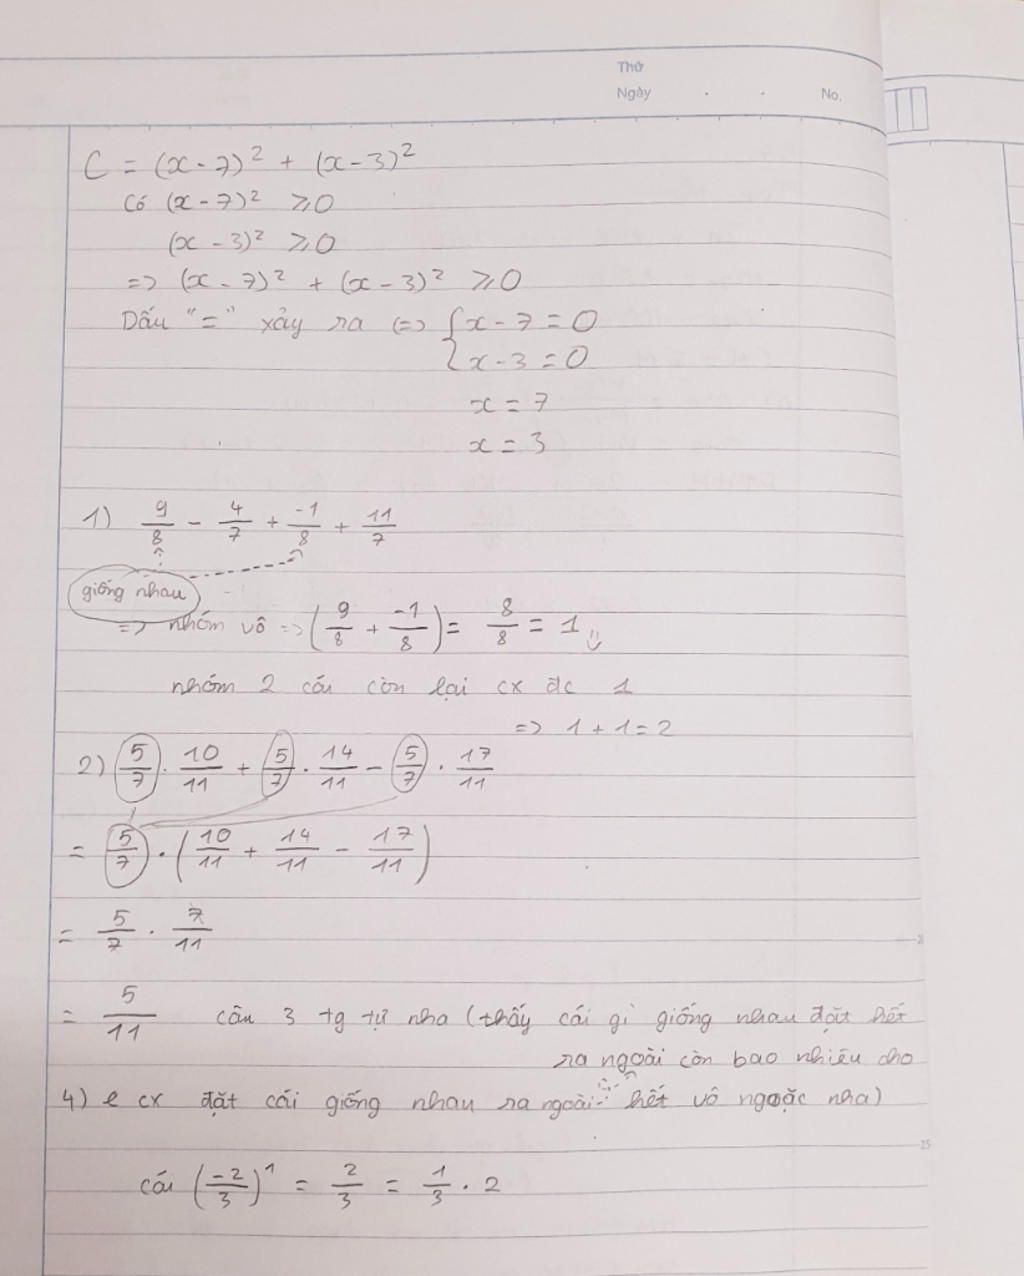 Thứ
Ngày . . No.
C = (x - 7)² + (x - 3)²
Có (x - 7)² ⩾ 0
(x - 3)² ⩾ 0
=> (x - 7)² + (x - 3)² ⩾ 0
Dấu "=" xảy ra (=> { x - 7 = 0
x - 3 = 0
x = 7
x = 3
1) 9/8 - 4/7 + -1/8 + 11/7
giống nhau
=> nhóm vô => (9/8 + -1/8) = 8/8 = 1
nhóm 2 cái còn lại cx đc 1
=> 1 + 1 = 2
2) 5/7 . 10/11 + 5/7 . 14/11 - 5/7 . 17/11
= 5/7 . (10/11 + 14/11 - 17/11)
= 5/7 . 7/11
= 5/11 câu 3 tg tự nha (thấy cái gì giống nhau đặt hết
ra ngoài còn bao nhiêu cho
hết vô ngoặc nha)
4) e cx đặt cái giống nhau ra ngoài
cái (-2/3)¹ = 2/3 = 1/3 . 2
25